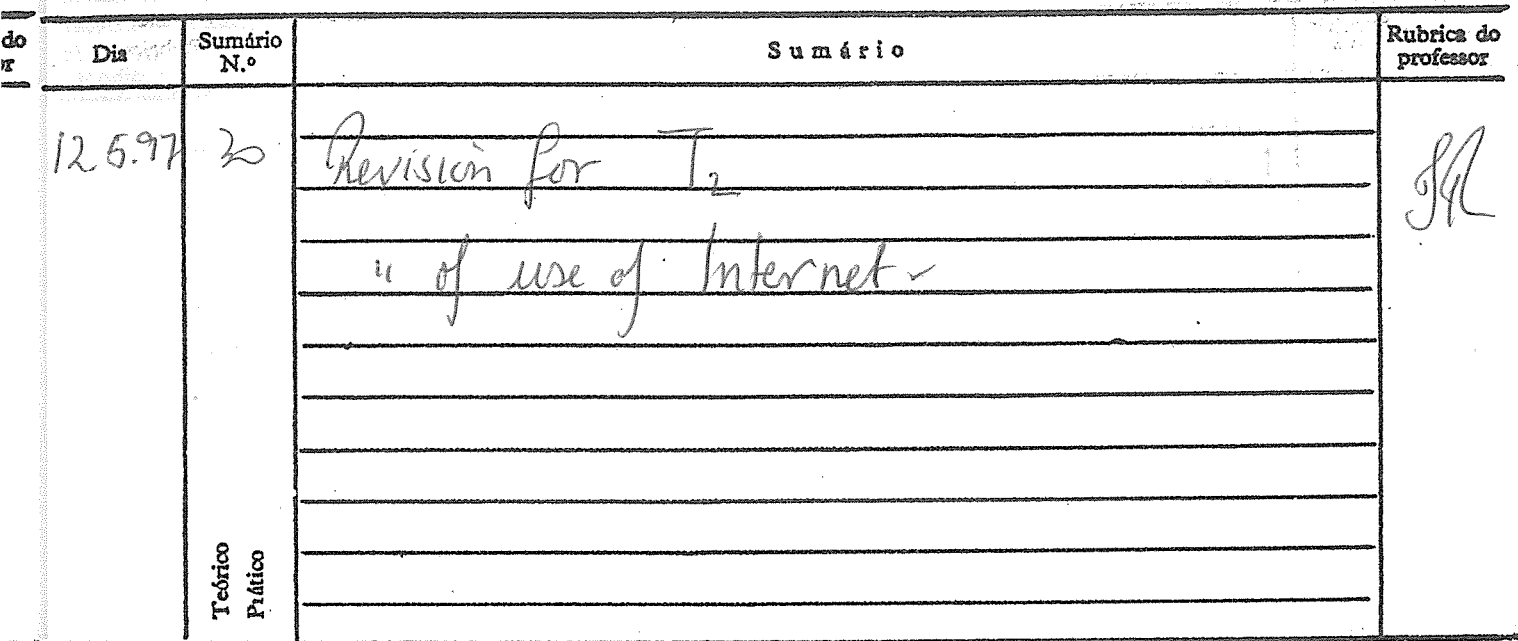 do
or
Dia
Sumário
N.º
Sumário
Rubrica do
professor
12.5.97 30 Revision for T2
" of use of Internet
Teórico
Prático